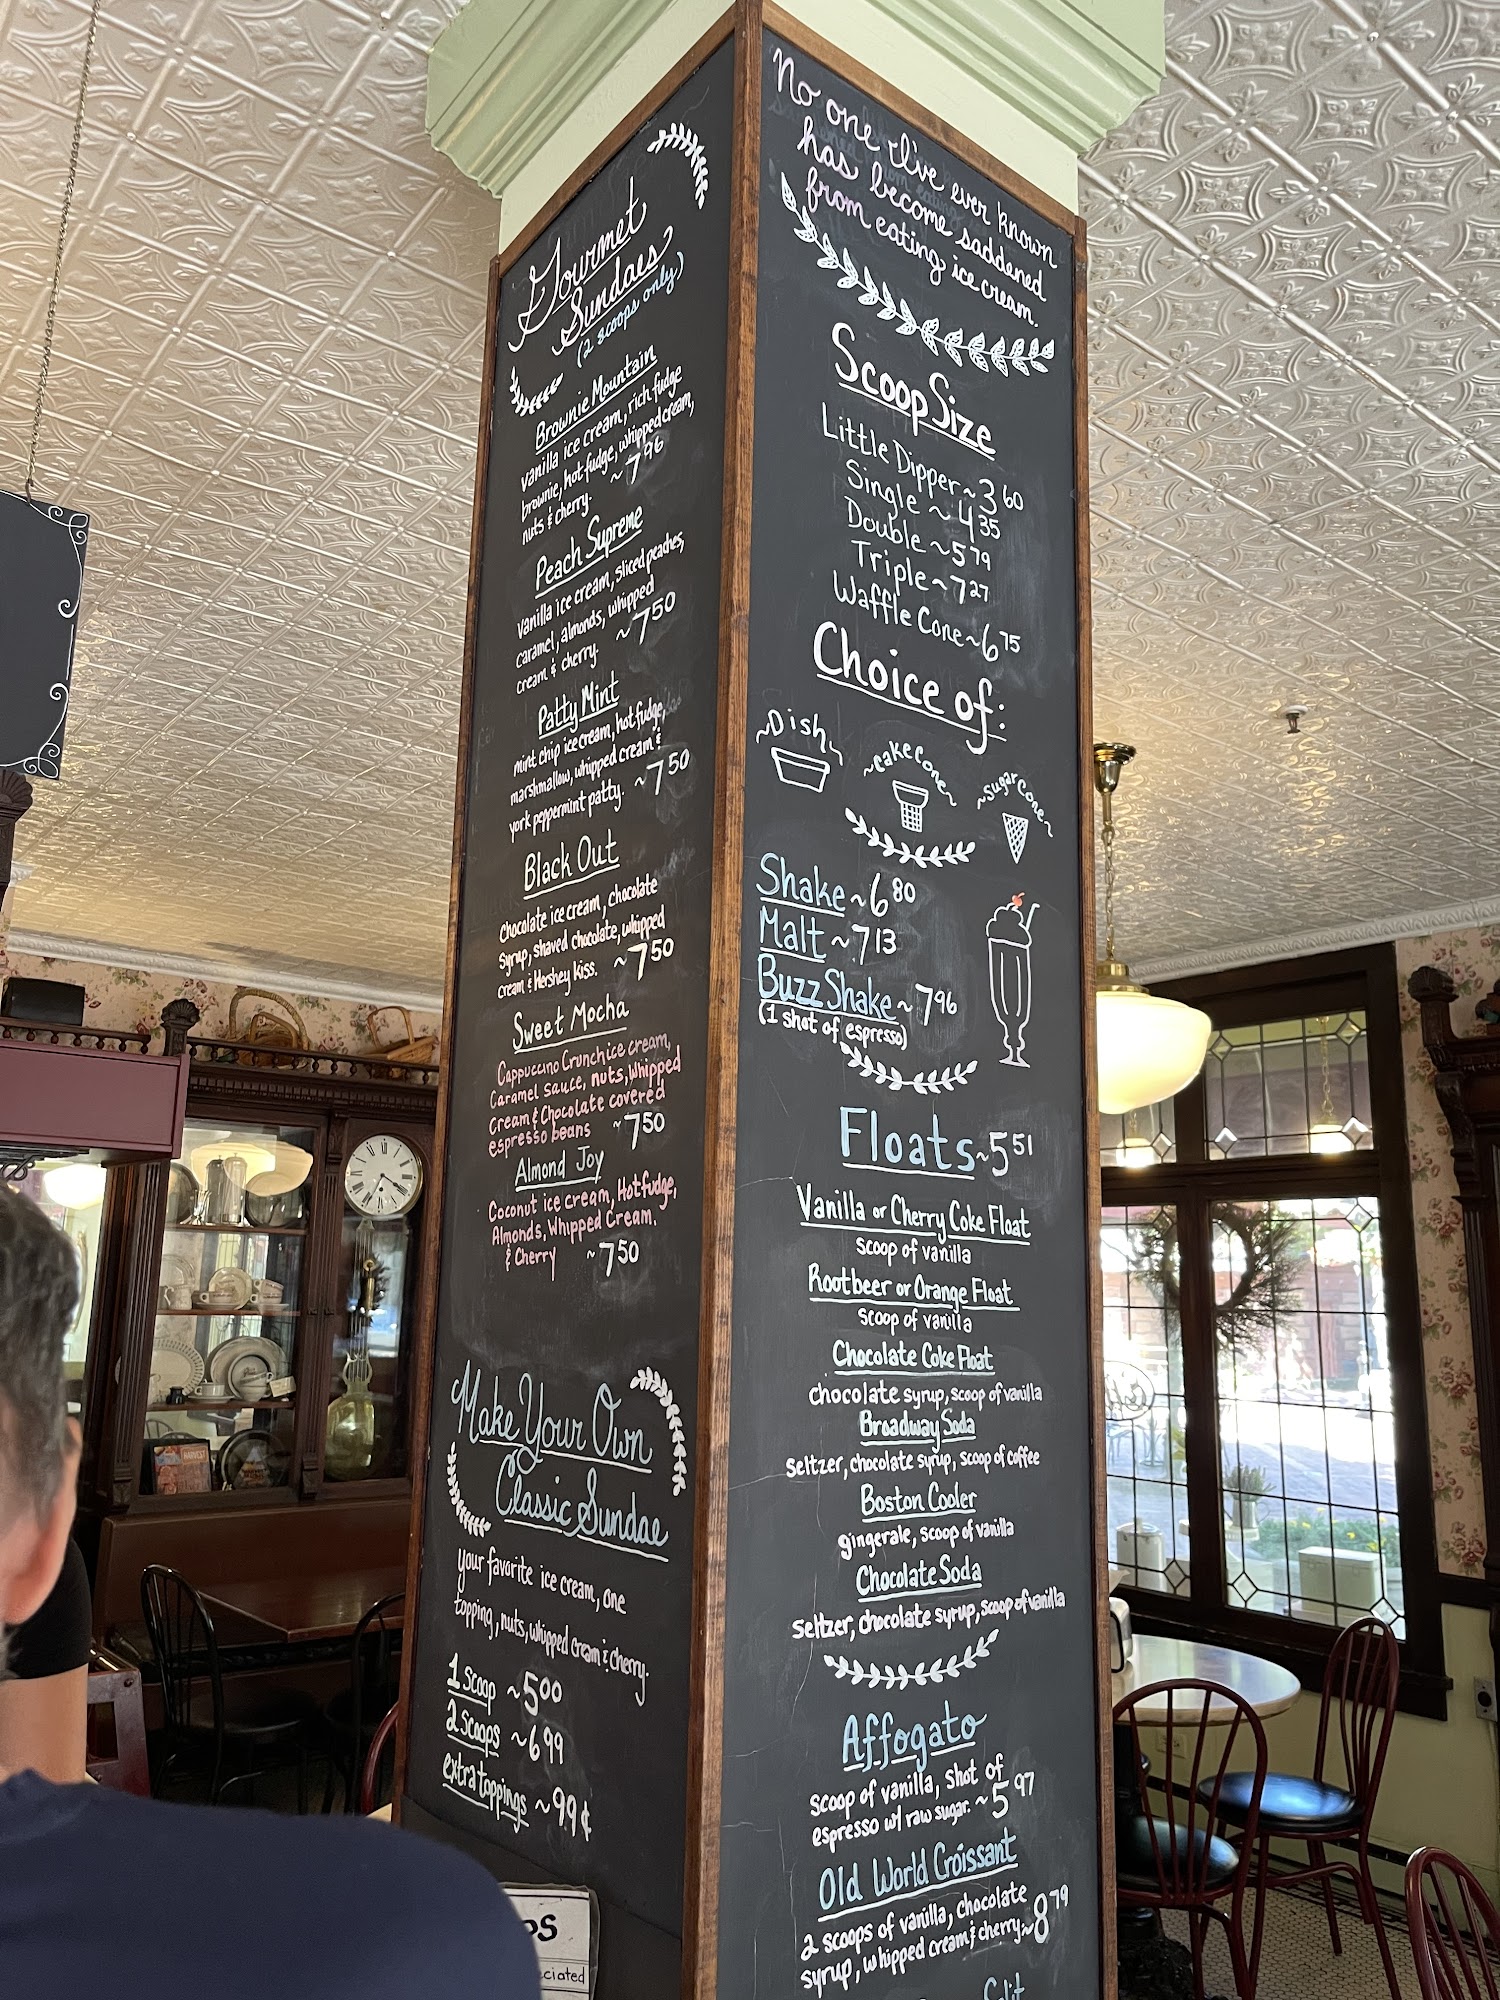 Gourmet
Sundaes
(2 scoops only)
Brownie Mountain
vanilla ice cream, rich fudge
brownie, hot fudge, whipped cream,
nuts & cherry. ~7.96
Peach Supreme
vanilla ice cream, sliced peaches,
caramel, almonds, whipped
cream & cherry. ~7.50
Patty Mint
mint chip ice cream, hot fudge,
marshmallow, whipped cream &
york peppermint patty. ~7.50
Black Out
Chocolate ice cream, chocolate
syrup, shaved chocolate, whipped
cream & Hershey kiss. ~7.50
Sweet Mocha
Cappuccino Crunch ice cream,
Caramel sauce, nuts, Whipped
Cream & Chocolate covered
espresso beans ~7.50
Almond Joy
Coconut ice cream, Hot fudge,
Almonds, Whipped Cream,
& Cherry ~7.50
Make Your Own
Classic Sundae
your favorite ice cream, one
topping, nuts, whipped cream & cherry.
1 scoop ~5.00
2 scoops ~6.99
extra toppings ~.99¢
No one I've ever known
has become saddened
from eating ice cream.
Scoop Size
Little Dipper ~3.60
Single ~4.35
Double ~5.79
Triple ~7.27
Waffle Cone ~6.75
Choice of:
~Dish~
~Cake Cone~
~Sugar Cone~
Shake ~6.80
Malt ~7.13
Buzz Shake ~7.96
(1 shot of espresso)
Floats ~5.51
Vanilla or Cherry Coke Float
scoop of vanilla
Rootbeer or Orange Float
scoop of vanilla
Chocolate Coke Float
chocolate syrup, scoop of vanilla
Broadway Soda
seltzer, chocolate syrup, scoop of coffee
Boston Cooler
gingerale, scoop of vanilla
Chocolate Soda
seltzer, chocolate syrup, scoop of vanilla
Affogato
scoop of vanilla, shot of
espresso w/ raw sugar. ~5.97
Old World Croissant
2 scoops of vanilla, chocolate
syrup, whipped cream & cherry ~8.79